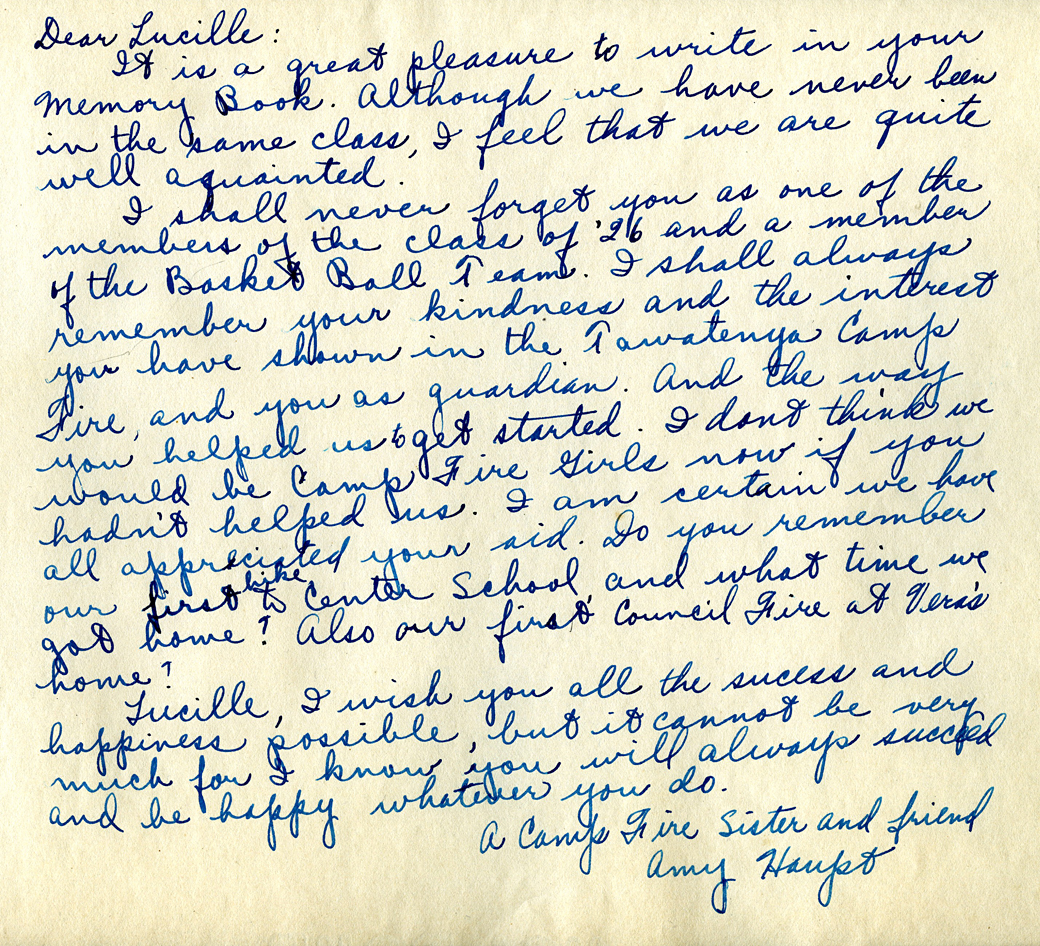 Dear Lucille:
It is a great pleasure to write in your
Memory Book. Although we have never been
in the same class, I feel that we are quite
well aquainted.
I shall never forget you as one of the
members of the class of '26 and a member
of the Basket Ball Team. I shall always
remember your kindness and the interest
you have shown in the Tawatenya Camp
Fire, and you as guardian. And the way
you helped us to get started. I dont think we
would be Camp Fire Girls now if you
hadn't helped us. I am certain we have
all appreciated your aid. Do you remember
our first hike to Center School, and what time we
got home? Also our first Council Fire at Vera's
home?
Lucille, I wish you all the sucess and
happiness possible, but it cannot be very
much for I know you will always succeed
and be happy whatever you do.
A Camp Fire Sister and friend
Amy Haupt